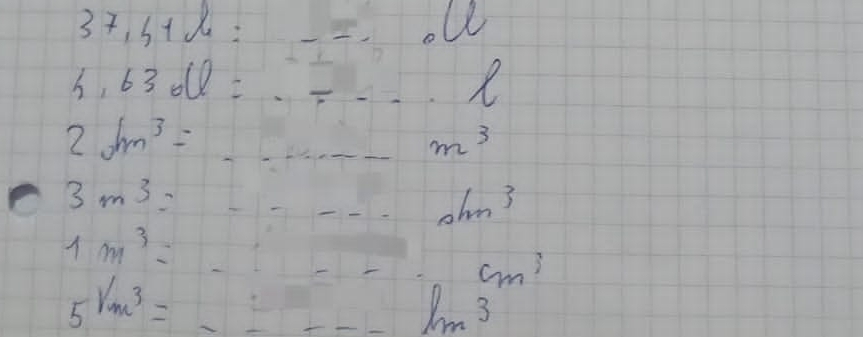 37,41 l = --- dl
4,63 dl = ----- l
2 dm³ = ------ m³
3 m³ = ----- dm³
1 m³ = ----- cm³
5 km³ = ----- hm³